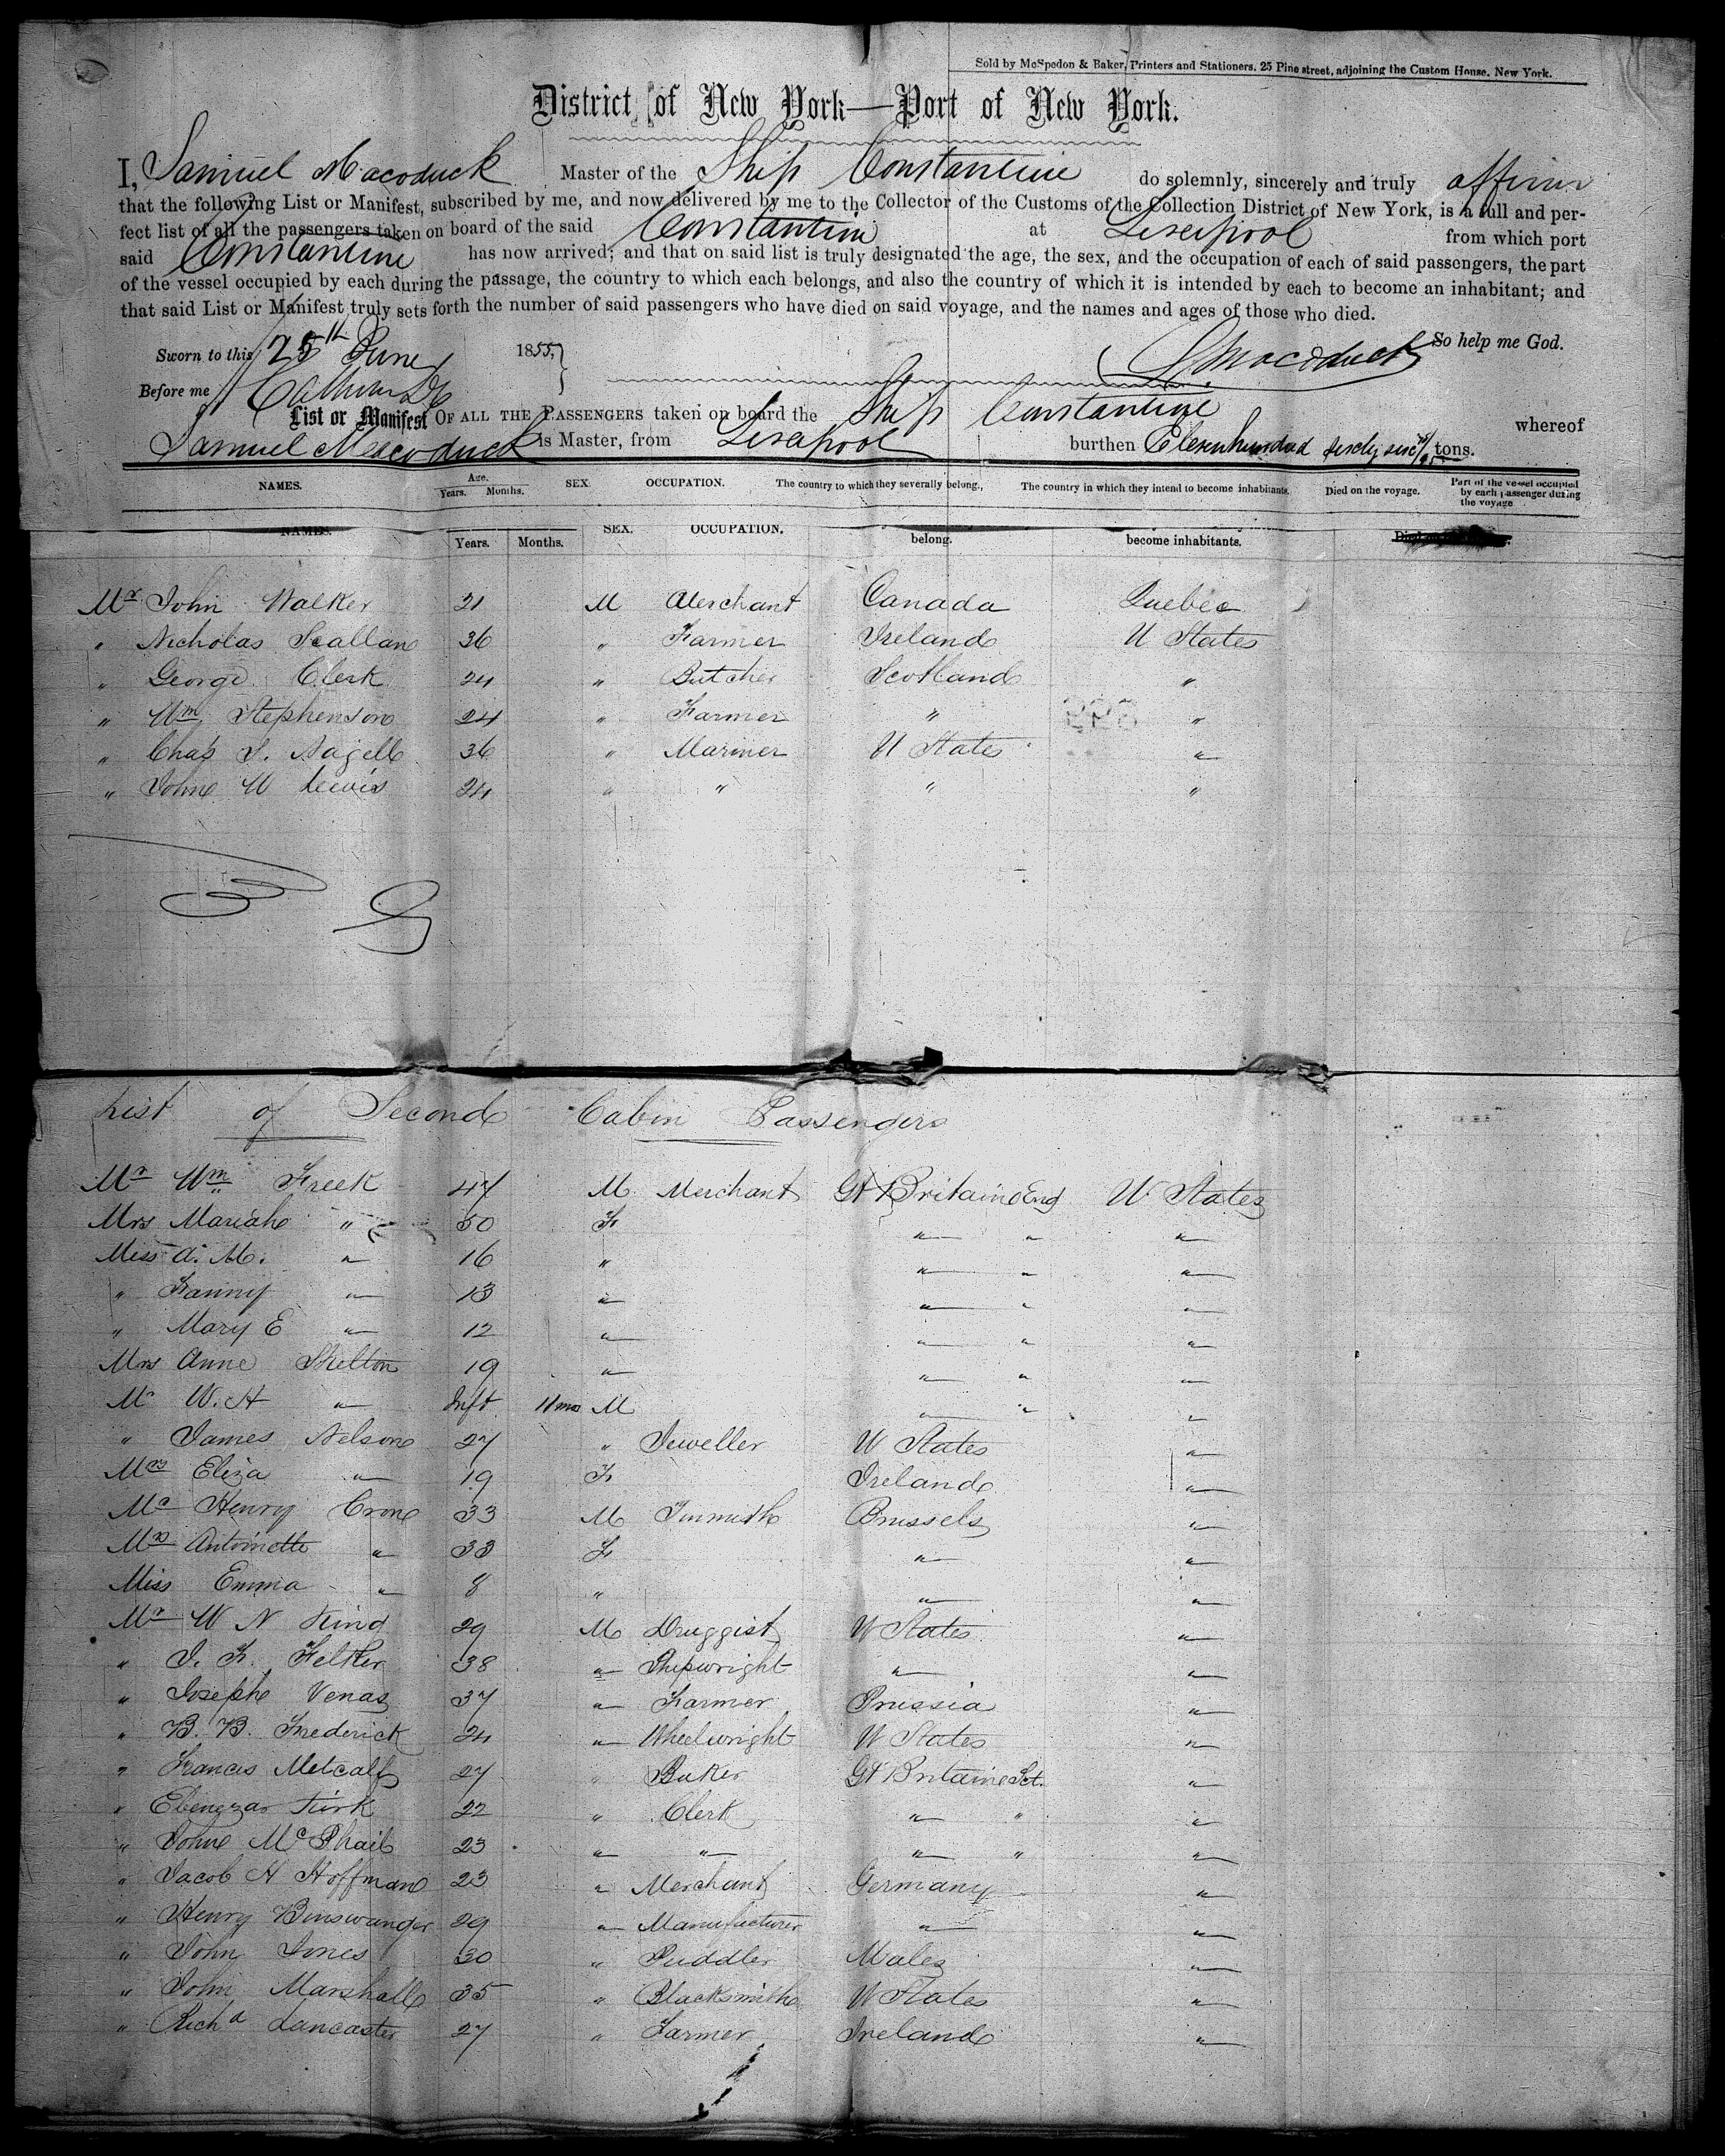 Sold by McSpedon & Baker, Printers and Stationers. 25 Pine street, adjoining the Custom House. New York.
District of New York—Port of New York.
I, Samuel Macoduck Master of the Ship Constantine do solemnly, sincerely and truly affirm
that the following List or Manifest, subscribed by me, and now delivered by me to the Collector of the Customs of the Collection District of New York, is a full and per-
fect list of all the passengers taken on board of the said Constantine at Liverpool from which port
said Constantine has now arrived; and that on said list is truly designated the age, the sex, and the occupation of each of said passengers, the part
of the vessel occupied by each during the passage, the country to which each belongs, and also the country of which it is intended by each to become an inhabitant; and
that said List or Manifest truly sets forth the number of said passengers who have died on said voyage, and the names and ages of those who died.
So help me God.
Sworn to this 25th June 1855,
S Macoduck
Before me
List or Manifest OF ALL THE PASSENGERS taken on board the Ship Constantine whereof
Samuel Macoduck is Master, from Liverpool burthen Elevenhundred tons.
NAMES. Age. Years. Months. SEX. OCCUPATION. The country to which they severally belong. The country in which they intend to become inhabitants. Died on the voyage. Part of the vessel occupied by each passenger during the voyage
NAMES. Years. Months. SEX. OCCUPATION. belong. become inhabitants.
Mr John Walker 31 M Merchant Canada Quebec
" Nicholas Scallan 36 " Farmer Ireland U States
" George Clerk 24 " Butcher Scotland "
" Wm Stephenson 24 " Farmer " "
" Chas 36 " Mariner U States "
" John W Lewis 24 " " " "
List of Second Cabin Passengers
Mr Wm Freek 47 M Merchant Gt Britain Eng U States
Mrs Mariah " 50 F " " "
Miss A. M. " 16 " " " "
" Fanny " 13 " " " "
" Mary E " 12 " " " "
Mrs Anne Shelton 19 " " " "
Mr W. H " Inft 11 mos M " " "
" James Nelson 27 " Jeweller U States "
Mrs Eliza " 19 F Ireland "
Mr Henry Crone 33 M Tinsmith Brussels "
Mrs Antoinette " 33 F " "
Miss Emma " 8 " " "
Mr W N King 29 M Druggist U States "
" J. F. Felker 38 " Shipwright " "
" Joseph Venas 37 " Farmer Prussia "
" B. B. Frederick 24 " Wheelwright U States "
" Francis Metcalf 27 " Baker Gt Britain Sct. "
" Ebenezar Kirk 22 " Clerk " " "
" John McPhail 23 " " " " "
" Jacob H Hoffman 23 " Merchant Germany "
" Henry Binswanger 29 " Manufacturer " "
" John Jones 30 " Puddler Wales "
" John Marshall 35 " Blacksmith U States "
" Richd Lancaster 27 " Farmer Ireland "